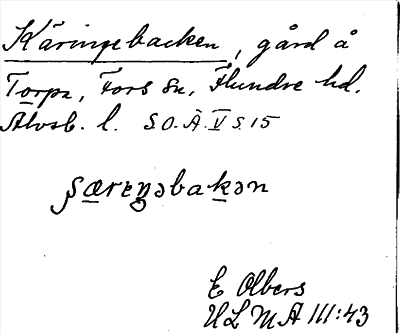 Käringebacken, gård å
Torpa, Fors sn, Flundre hd.
Älvsb. l. S.O.Ä. V s. 15
ʂærɛŋəbakən
E Olbers
ULMA 111:43